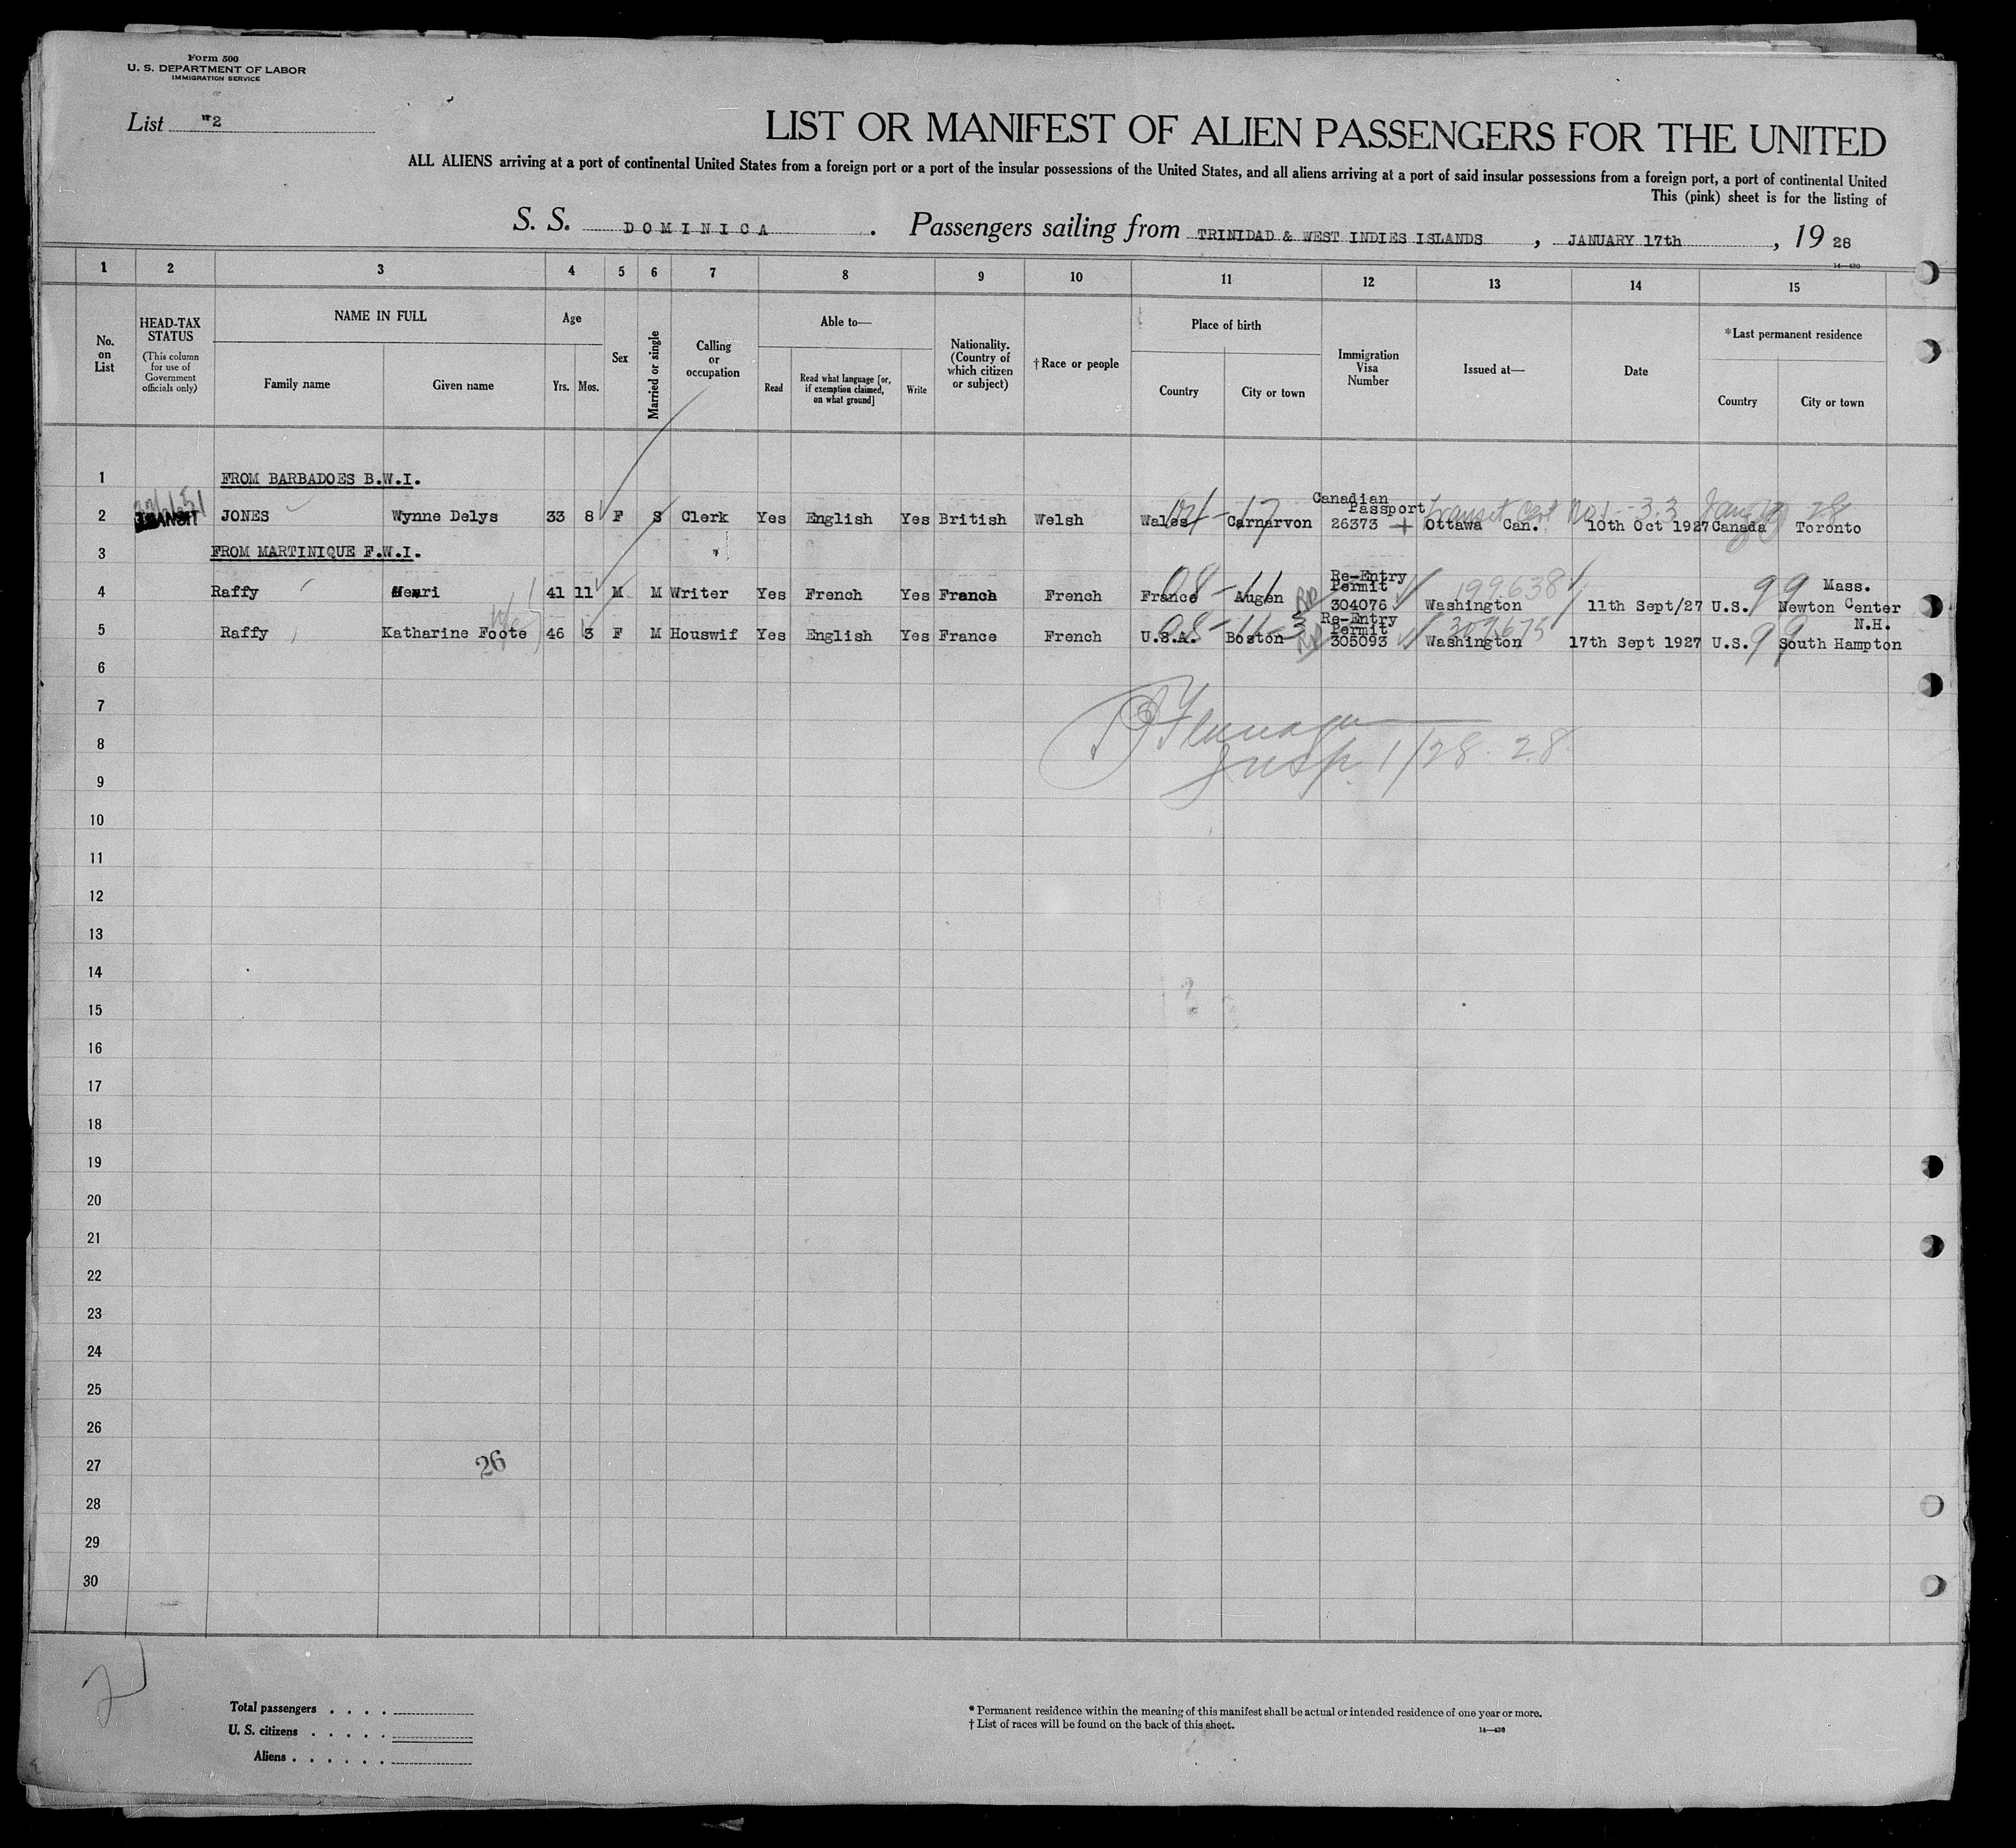 Form 500
U. S. DEPARTMENT OF LABOR
IMMIGRATION SERVICE
List "2
LIST OR MANIFEST OF ALIEN PASSENGERS FOR THE UNITED
ALL ALIENS arriving at a port of continental United States from a foreign port or a port of the insular possessions of the United States, and all aliens arriving at a port of said insular possessions from a foreign port, a port of continental United
This (pink) sheet is for the listing of
S. S. DOMINICA. Passengers sailing from TRINIDAD & WEST INDIES ISLANDS, JANUARY 17th, 19 28
14—430
1 2 3 4 5 6 7 8 9 10 11 12 13 14 15
No. on List
HEAD-TAX STATUS (This column for use of Government officials only)
NAME IN FULL
Family name Given name
Age
Yrs. Mos.
Sex
Married or single
Calling or occupation
Able to—
Read Read what language [or, if exemption claimed, on what ground] Write
Nationality. (Country of which citizen or subject)
†Race or people
Place of birth
Country City or town
Immigration Visa Number
Issued at—
Date
*Last permanent residence
Country City or town
1 FROM BARBADOES B.W.I.
2 TRANSIT JONES Wynne Delys 33 8 F S Clerk Yes English Yes British Welsh Wales Carnarvon Canadian Passport 26373 + Ottawa Can. 10th Oct 1927 Canada Toronto
3 FROM MARTINIQUE F.W.I.
4 Raffy Henri 41 11 M M Writer Yes French Yes Franch French France Augen Re-Entry Permit 304076 199638 Washington 11th Sept/27 U.S. 99 Mass. Newton Center
5 Raffy Katharine Foote 46 3 F M Houswif Yes English Yes France French U.S.A. Boston Re-Entry Permit 305093 Washington 17th Sept 1927 U.S. 99 N.H. South Hampton
6
7
8
Insp. 1/28-28
9
10
11
12
13
14
15
16
17
18
19
20
21
22
23
24
25
26
27
26
28
29
30
2
Total passengers . . . .
U. S. citizens . . . . .
Aliens . . . . . .
* Permanent residence within the meaning of this manifest shall be actual or intended residence of one year or more.
† List of races will be found on the back of this sheet.
14—430